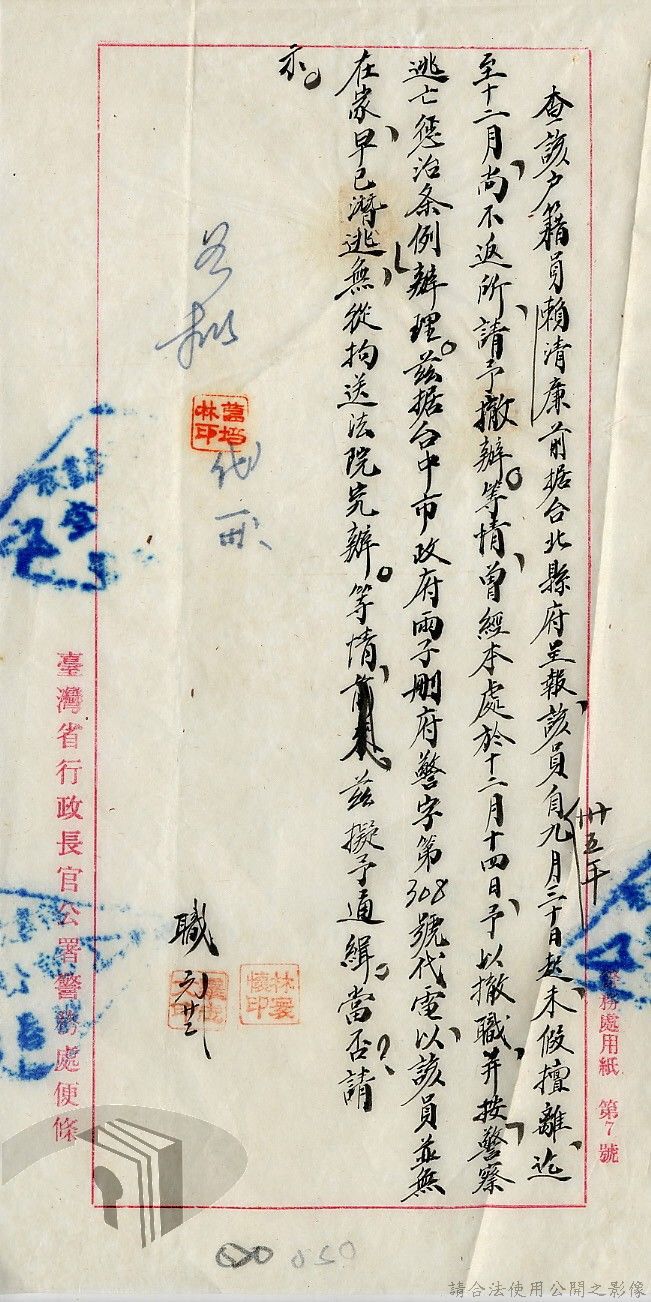 警務處用紙　第7號
卅五年
查該户籍員賴清廉前据台北縣府呈報、該員自九月三十日起未假擅離、迄
至十二月、尚不返所、請予撤辦。等情、曾經本處於十二月十四日、予以撤職、并按警察
逃亡懲治条例辦理。兹据台中市政府兩子刪府警字第308號代電、以該員並無
在家、早已潛逃、無從拘送法院究辦。等情、兹擬予通緝。當否？請
示。
職
林襄懷印
代
臺灣省行政長官公署警務處便條
050
請合法使用公開之影像